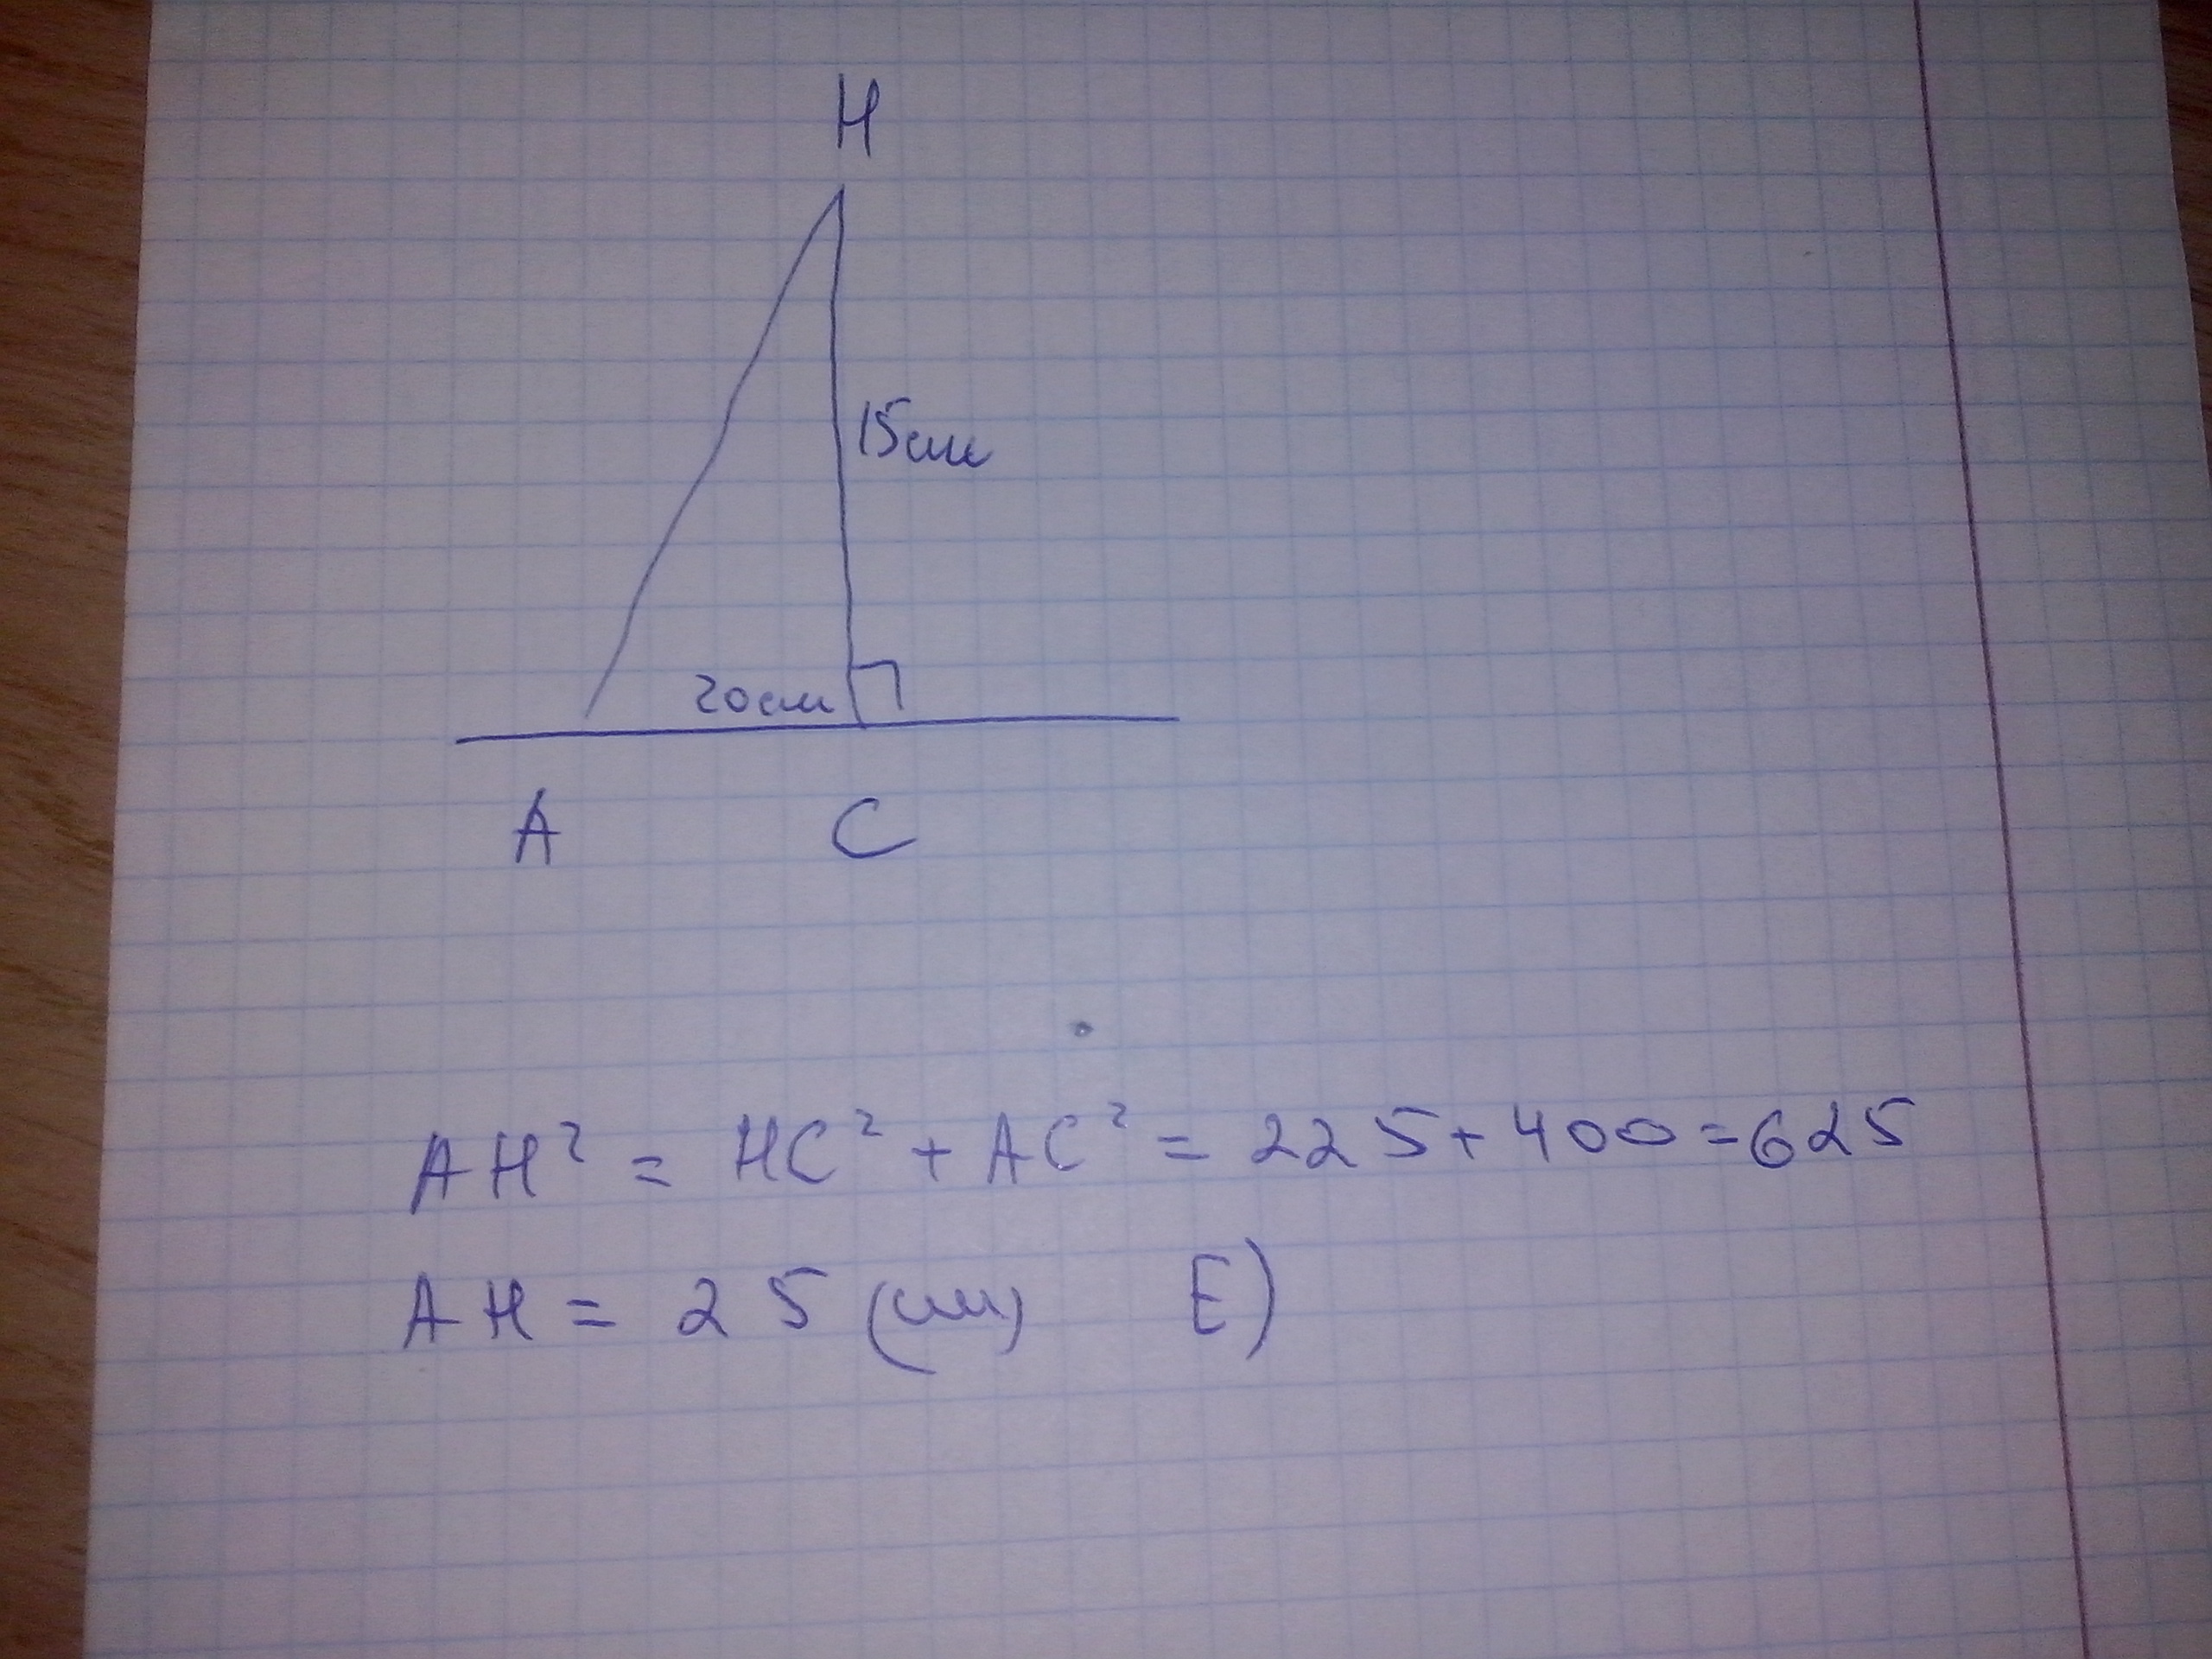 H
15см
20см
A C
AH² = HC² + AC² = 225 + 400 = 625
AH = 25 (см) E)